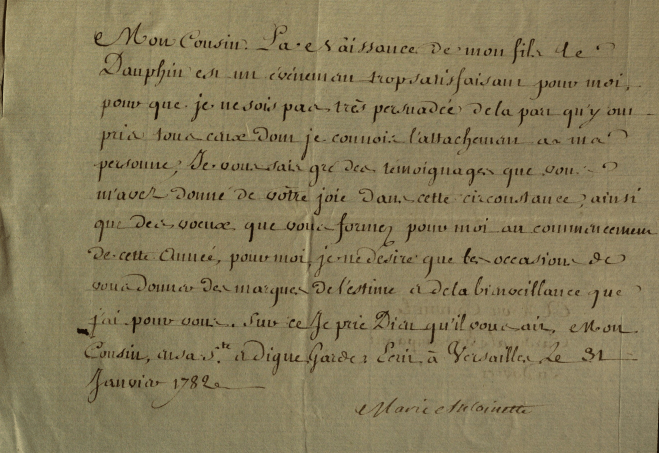 Mon Cousin. La Naissance de mon fils le
Dauphin est un événement trop satisfaisant pour moi,
pour que je ne sois pas très persuadée de la part qu'y ont
pris tous ceux dont je connois l'attachement a ma
personne, Je vous sais gré des témoignages que vous
m'avez donné de vôtre joie dans cette circonstance, ainsi
que des voeux que vous formez pour moi au commencement
de cette Année, pour moi, je ne désire que les occasions de
vous donner des marques de l'estime & de la bienveillance que
j'ai pour vous. Sur ce Je prie Dieu qu'il vous ait, Mon
Cousin, en sa S.te & digne Garde: Ecrit à Versailles, Le 31
Janvier 1782
Marie Antoinette